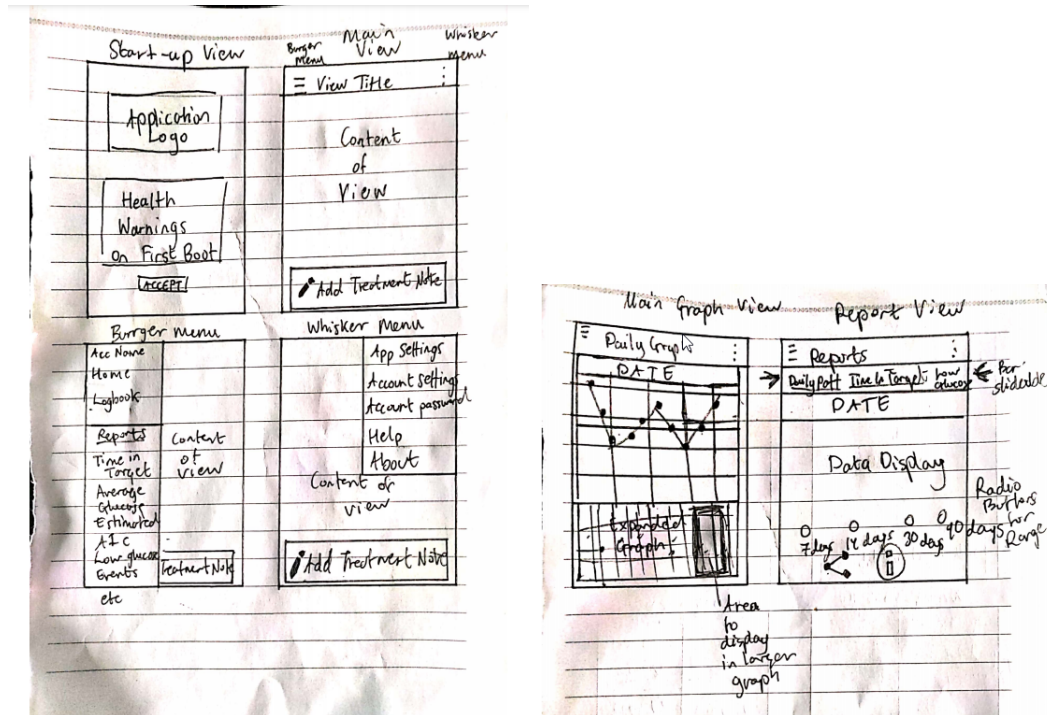 Start-up View
Application
Logo
Health
Warnings
on First Boot
ACCEPT
Burger
Menu
Main
View
Whisker
menu
View Title
Content
of
View
Add Treatment Note
Burger menu
Acc Name
Home
Logbook
Reports
Time in
Target
Average
Glucose
Estimated
A1C
Low glucose
Events
etc
Content
of
View
Treatment Note
Whisker Menu
App Settings
Account Settings
Account password
Help
About
Content of
view
Add Treatment Note
Main Graph View
Daily Graph
DATE
Expanded
Graph
Area
to
display
in larger
graph
Report View
Reports
Daily Patt Time In Target Low
Glucose
Bar
slideable
DATE
Data Display
7 days 14 days 30 days 90 days
Radio
Buttons
for
Range